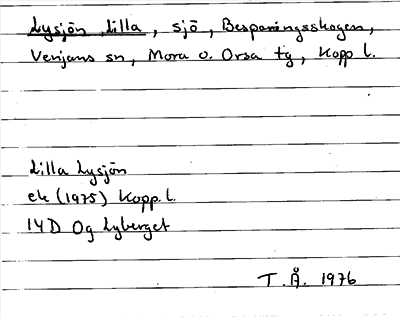 Lysjön, Lilla, sjö, Besparingsskogen,
Venjans sn, Mora o. Orsa tg, Kopp l.
Lilla Lysjön
ek (1975) Kopp. l.
14D Og Lyberget
T.Å. 1976